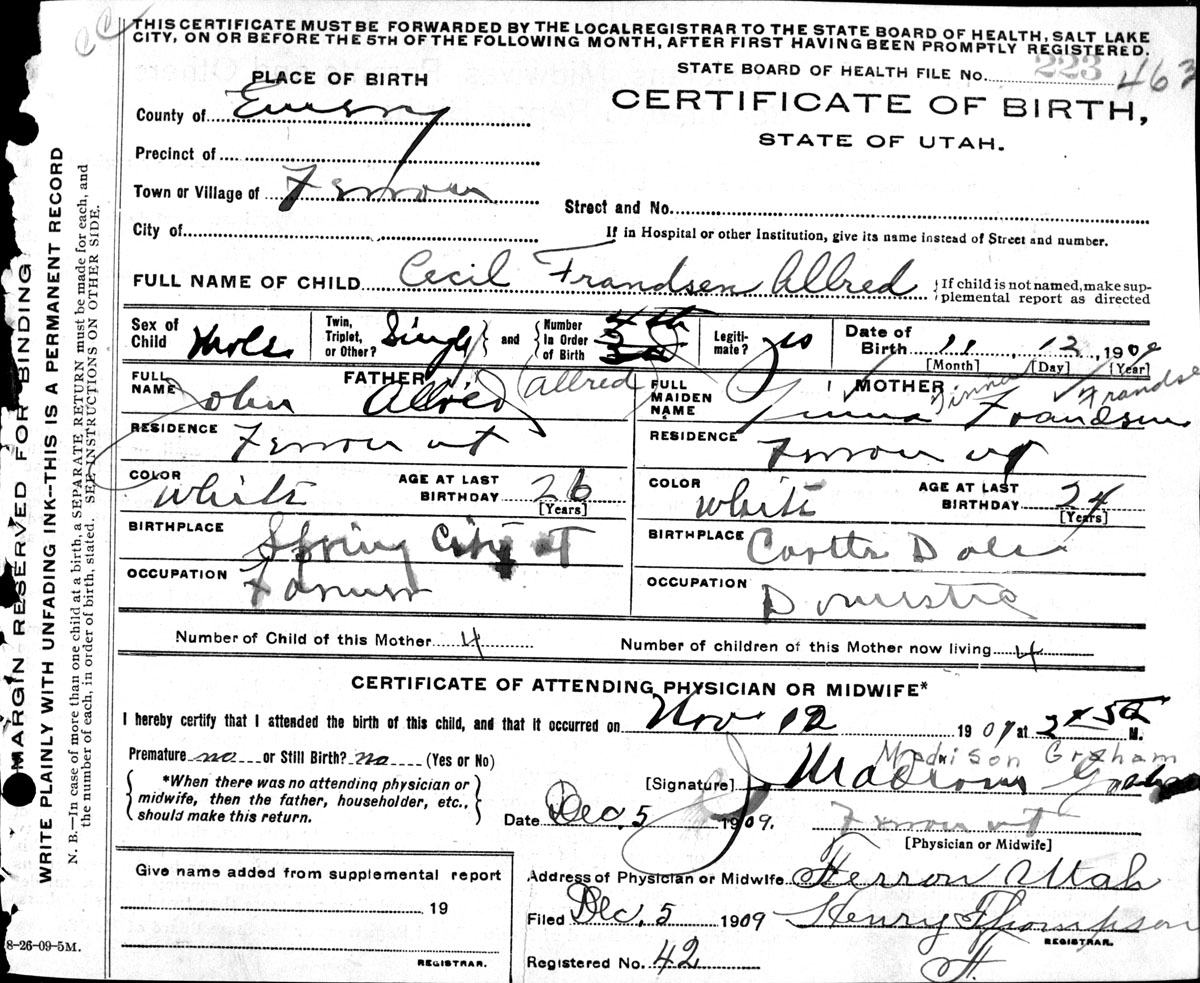 THIS CERTIFICATE MUST BE FORWARDED BY THE LOCAL REGISTRAR TO THE STATE BOARD OF HEALTH, SALT LAKE
CITY, ON OR BEFORE THE 5TH OF THE FOLLOWING MONTH, AFTER FIRST HAVING BEEN PROMPTLY REGISTERED.
STATE BOARD OF HEALTH FILE NO. 223 463
PLACE OF BIRTH
CERTIFICATE OF BIRTH,
STATE OF UTAH.
County of Emery
Precinct of
Town or Village of Ferron
Street and No.
City of
If in Hospital or other Institution, give its name instead of Street and number.
FULL NAME OF CHILD Cecil Frandsen Allred
If child is not named, make sup-
plemental report as directed
Sex of Child Male
Twin, Triplet, or Other? Single and
Number In Order of Birth 4th
Legiti-mate? yes
Date of Birth 11, 12, 1909
[Month] [Day] [Year]
FATHER
FULL NAME John Allred (Allred)
MOTHER
FULL MAIDEN NAME Frandsen
RESIDENCE Ferron ut
RESIDENCE Ferron ut
COLOR White
AGE AT LAST BIRTHDAY 26 [Years]
COLOR White
AGE AT LAST BIRTHDAY 24 [Years]
BIRTHPLACE Spring City ut
BIRTHPLACE Castle Dale
OCCUPATION Farmer
OCCUPATION Domestic
Number of Child of this Mother 4
Number of children of this Mother now living 4
CERTIFICATE OF ATTENDING PHYSICIAN OR MIDWIFE*
I hereby certify that I attended the birth of this child, and that it occurred on Nov 12 1909 at M.
Premature no or Still Birth? no (Yes or No)
Madison Graham
[Signature] J Madison Graham
*When there was no attending physician or
midwife, then the father, householder, etc.,
should make this return.
Date Dec. 5 1909.
Ferron ut
[Physician or Midwife]
Give name added from supplemental report
19
REGISTRAR.
Address of Physician or Midwife Ferron Utah
Filed Dec. 5 1909 Henry Thompson
REGISTRAR.
Registered No. 42
8-26-09-5M.
MARGIN RESERVED FOR BINDING
WRITE PLAINLY WITH UNFADING INK--THIS IS A PERMANENT RECORD
N. B.—In case of more than one child at a birth, a SEPARATE RETURN must be made for each, and
the number of each, in order of birth, stated. SEE INSTRUCTIONS ON OTHER SIDE.